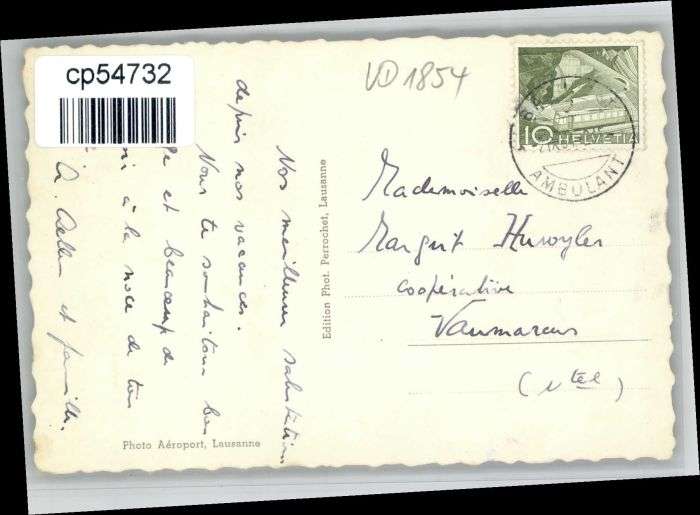 cp54732
VD 1854
10 HELVETIA
AMBULANT
Mademoiselle
Margrit Huwyler
coopérative
Vaumarcus
(Ntel)
Nos meilleurs salutations
depuis nos vacances.
Nous te souhaitons bon
et beaucoup de
à la noce de ton
A. Aellen et famille.
Edition Phot. Perrochet, Lausanne
Photo Aéroport, Lausanne